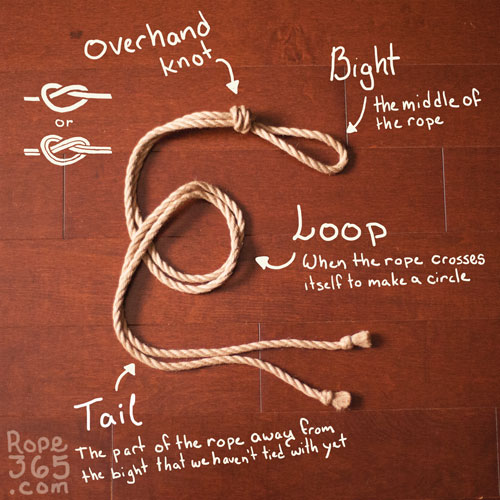 Overhand
knot
or
Bight
the middle of
the rope
Loop
When the rope crosses
itself to make a circle
Tail
The part of the rope away from
the bight that we haven't tied with yet
Rope
365
.com